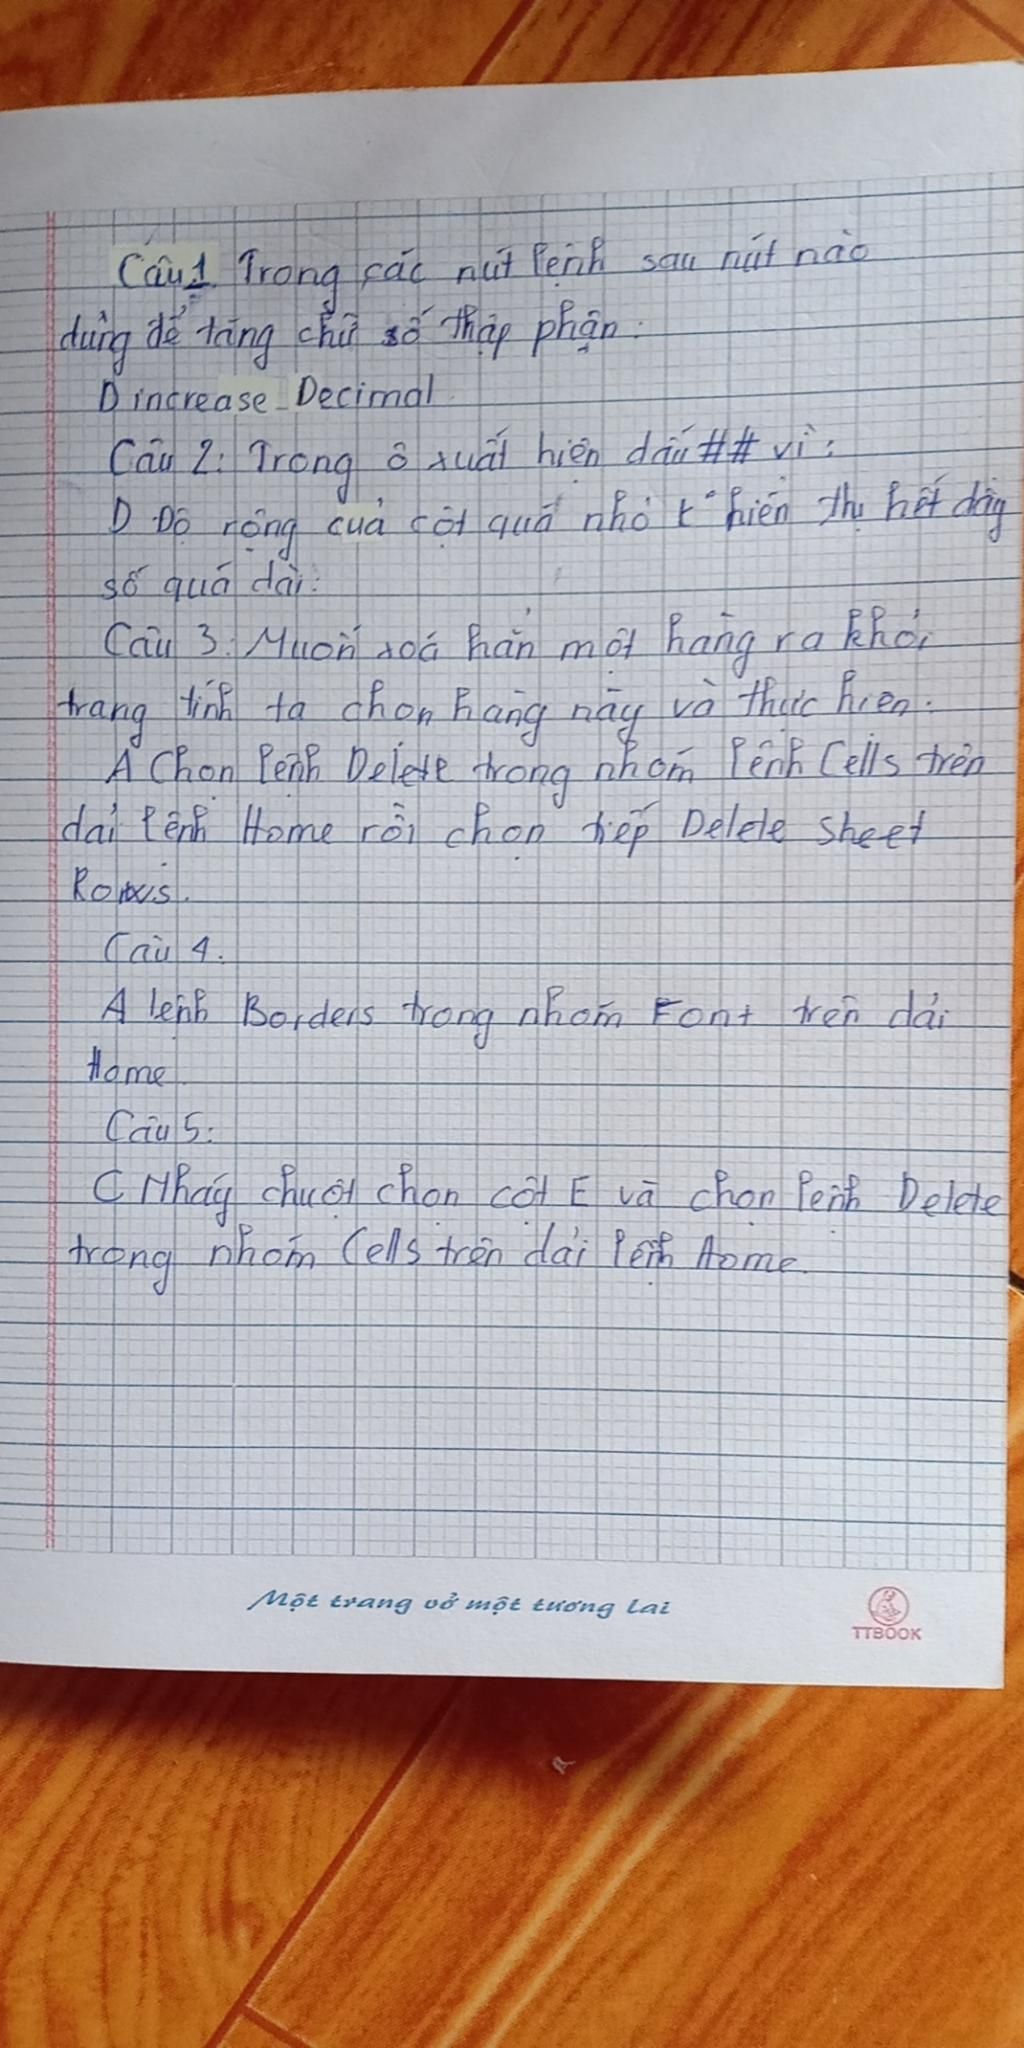 Câu 1. Trong các nút lệnh sau nút nào
dùng để tăng chữ số thập phận:
D increase Decimal
Câu 2: Trong ô xuất hiện dấu ## vì:
D Độ rộng của cột quá nhỏ k° hiển thị hết dãy
số quá dài:
Câu 3: Muốn xoá hẳn một hàng ra khỏi
trang tính ta chọn hàng này và thực hiện:
A Chọn lệnh Delete trong nhóm lệnh Cells trên
dải lệnh Home rồi chọn tiếp Delete sheet
Rows.
Câu 4.
A lệnh Borders trong nhóm Font trên dải
Home
Câu 5:
C Nháy chuột chọn cột E và chọn lệnh Delete
trong nhóm Cells trên dải lệnh Home.
Một trang vở một tương lai
TTBOOK